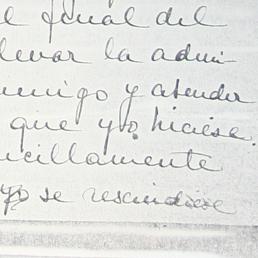 l final del
levar la admi-
migo y atender
que yo hiciese.
cillamente
yo se rescindiese